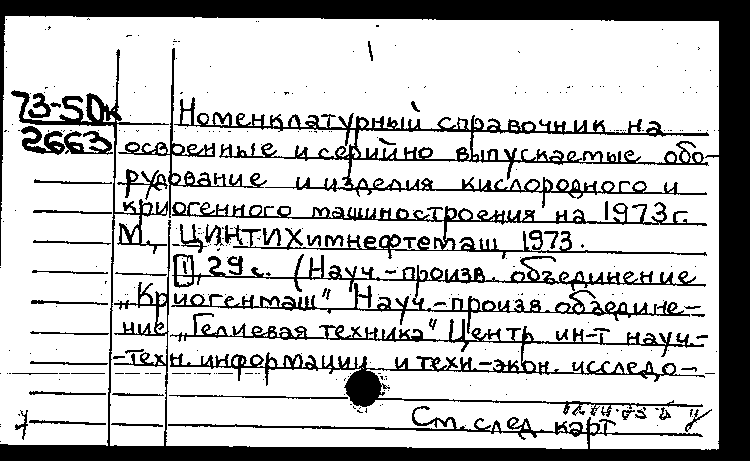 73-50к
2663
Номенклатурный справочник на
освоенные и серийно выпускаемые обо-
рудование и изделия кислородного и
криогенного машиностроения на 1973 г.
М., ЦИНТИХимнефтемаш, 1973.
[1], 29 с. (Науч.-произв. объединение
„Криогенмаш". Науч.-произв. объедине-
ние „Гелиевая техника" Центр. ин-т науч.-
-техн. информации и техн.-экон. исследо-
См. след. карт.